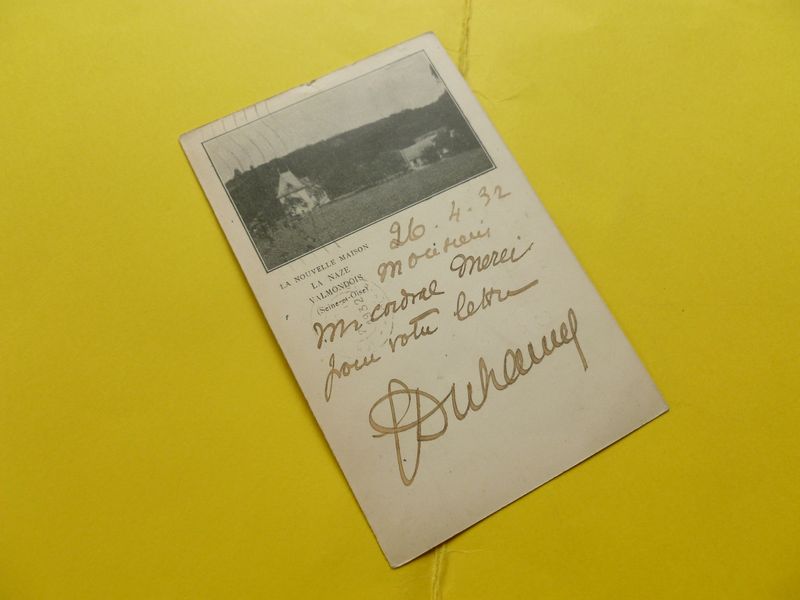 LA NOUVELLE MAISON
LA NAZE
VALMONDOIS
(Seine-et-Oise)
26.4.32
Monsieur
Un cordial Merci
pour votre lettre
GDuhamel